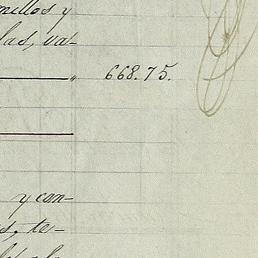 millos y
las, va-
" 668.75.
y con-
s, te-